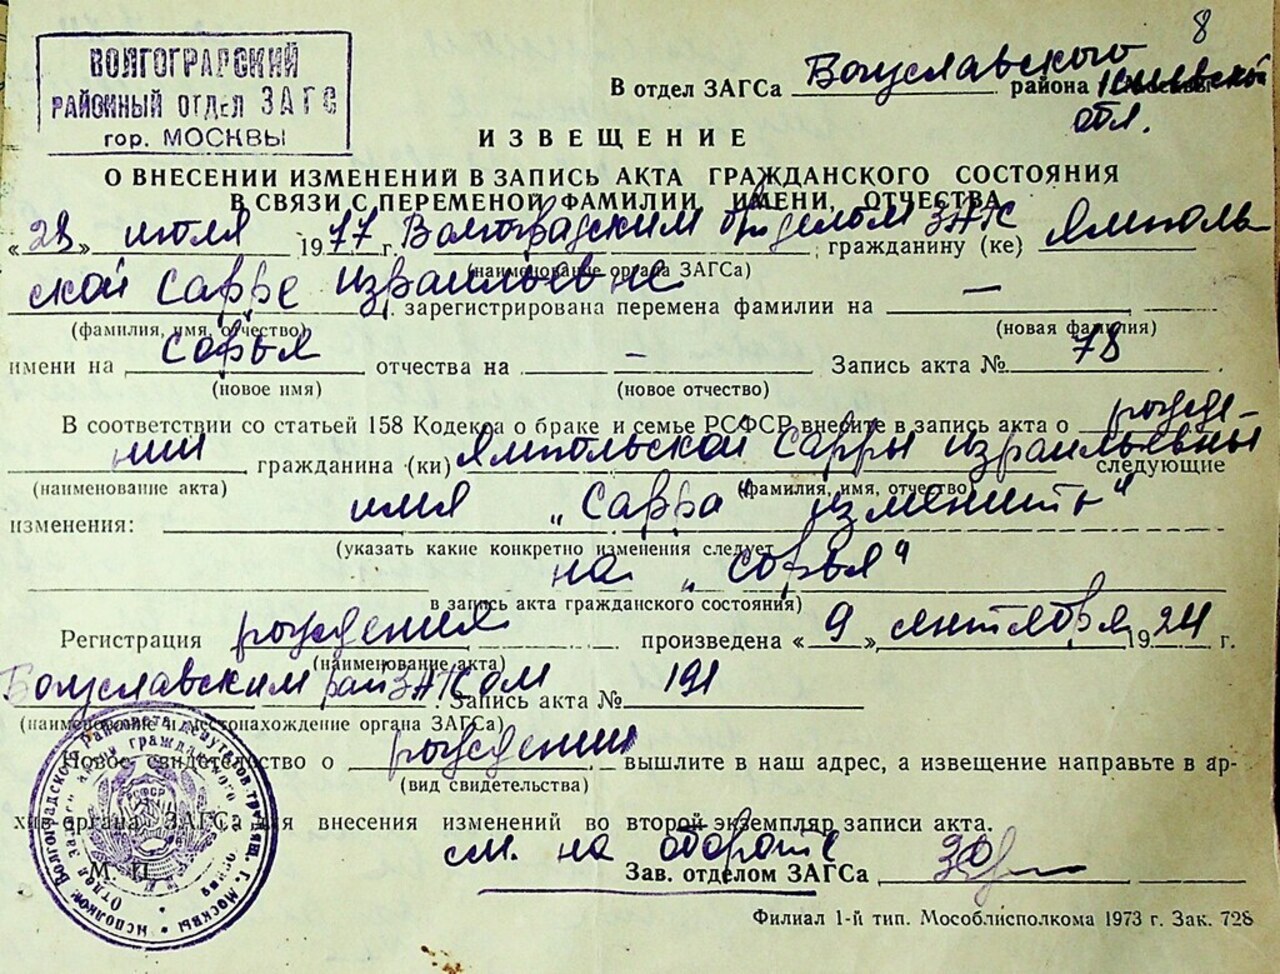 8
ВОЛГОГРАДСКИЙ
РАЙОННЫЙ ОТДЕЛ ЗАГС
гор. МОСКВЫ
В отдел ЗАГСа Богуславского района Киевской
обл.
ИЗВЕЩЕНИЕ
О ВНЕСЕНИИ ИЗМЕНЕНИЙ В ЗАПИСЬ АКТА ГРАЖДАНСКОГО СОСТОЯНИЯ
В СВЯЗИ С ПЕРЕМЕНОЙ ФАМИЛИИ, ИМЕНИ, ОТЧЕСТВА
«28» июля 1977 г. Волгоградским отделом ЗАГС; гражданину (ке) Ямполь
(наименование органа ЗАГСа)
ской Сарре Израильевне. зарегистрирована перемена фамилии на —
(фамилия, имя, отчество) (новая фамилия)
имени на Софья отчества на — Запись акта № 78.
(новое имя) (новое отчество)
В соответствии со статьей 158 Кодекса о браке и семье РСФСР внесите в запись акта о рожде-
нии, гражданина (ки) Ямпольской Сарры Израильевны следующие
(наименование акта) (фамилия, имя, отчество)
изменения: имя „Сарра" изменить"
(указать какие конкретно изменения следует
на „Софья"
в запись акта гражданского состояния)
Регистрация рождения произведена «9» сентября 1924 г.
(наименование акта)
Богуславским райЗАГСом. Запись акта № 191
(наименование и местонахождение органа ЗАГСа)
Новое свидетельство о рождении вышлите в наш адрес, а извещение направьте в ар-
(вид свидетельства)
хив органа ЗАГСа для внесения изменений во второй экземпляр записи акта.
см. на обороте
М. П. Зав. отделом ЗАГСа
Филиал 1-й тип. Мособлисполкома 1973 г. Зак. 728